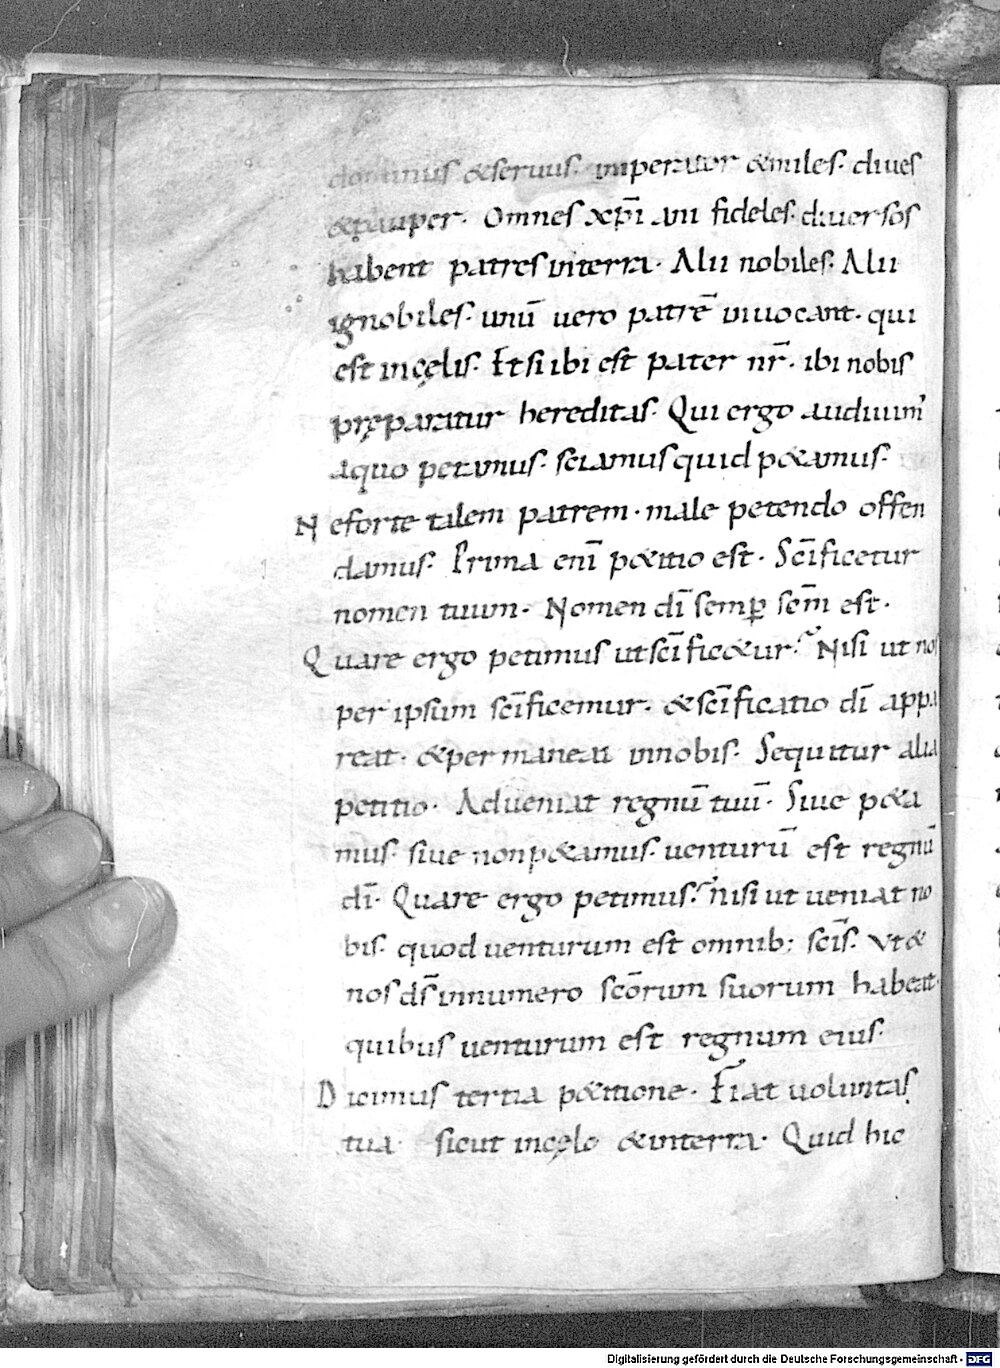 dominus &seruus. imperator &miles. diues
&pauper. Omnes xp̄iani fideles. diuersos
habent patres interra. Alii nobiles. Alii
ignobiles. unū uero patrē inuocant. qui
est incęlis. Et si ibi est pater nr̄. ibi nobis
pręparatur hereditas. Qui ergo audiuim'
aquo petimus. sciamus quid p&amus.
Neforte talem patrem. male petendo offen
damus. Prima enī p&itio est. Sc̄ificetur
nomen tuum. Nomen dī semꝑ sc̄m est.
Quare ergo petimus utsc̄ific&ur? Nisi ut nos
per ipsum sc̄ificemur. &sc̄ificatio dī appa
reat. &permaneat innobis. Sequitur alia
petitio. Adueniat regnū tuū. Siue p&a
mus. siue nonp&amus. uenturū est regnū
dī. Quare ergo petimus? nisi ut ueniat no
bis. quod uenturum est omnib; sc̄is. Vt&
nos ds̄ innumero sc̄orum suorum habeat.
quibus uenturum est regnum eius.
Dicimus tertia p&itione. Fiat uoluntas
tua sicut incęlo &interra. Quid hic
Digitalisierung gefördert durch die Deutsche Forschungsgemeinschaft - DFG